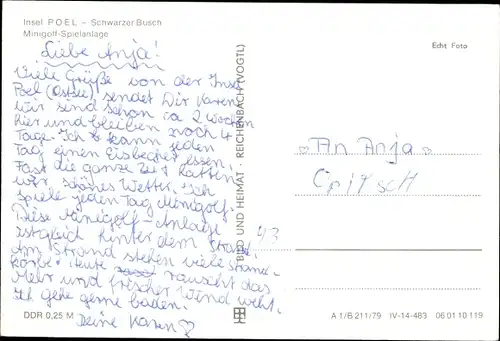 Insel POEL – Schwarzer Busch
Minigolf-Spielanlage
Echt Foto
Liebe Anja!
Viele Grüße von der Insel
Poel (Ostsee) sendet Dir Karen
wir sind schon ca 2 Wochen
hier und bleiben noch 4
Tage. Ich kann jeden
Tag einen Eisbecher essen.
Fast die ganze Zeit hatten
wir schönes Wetter. Ich
spiele jeden Tag Minigolf.
Diese Minigolf-Anlage
ist gleich hinter dem Strand.
Am Strand stehen viele Strand-
körbe. Heute rauscht das
Meer und frischer Wind weht.
Ich gehe gerne baden.
Deine Karen
BILD UND HEIMAT · REICHENBACH (VOGTL)
An Anja
43
DDR 0,25 M
A 1/B 211/79 IV-14-483 06 01 10 119